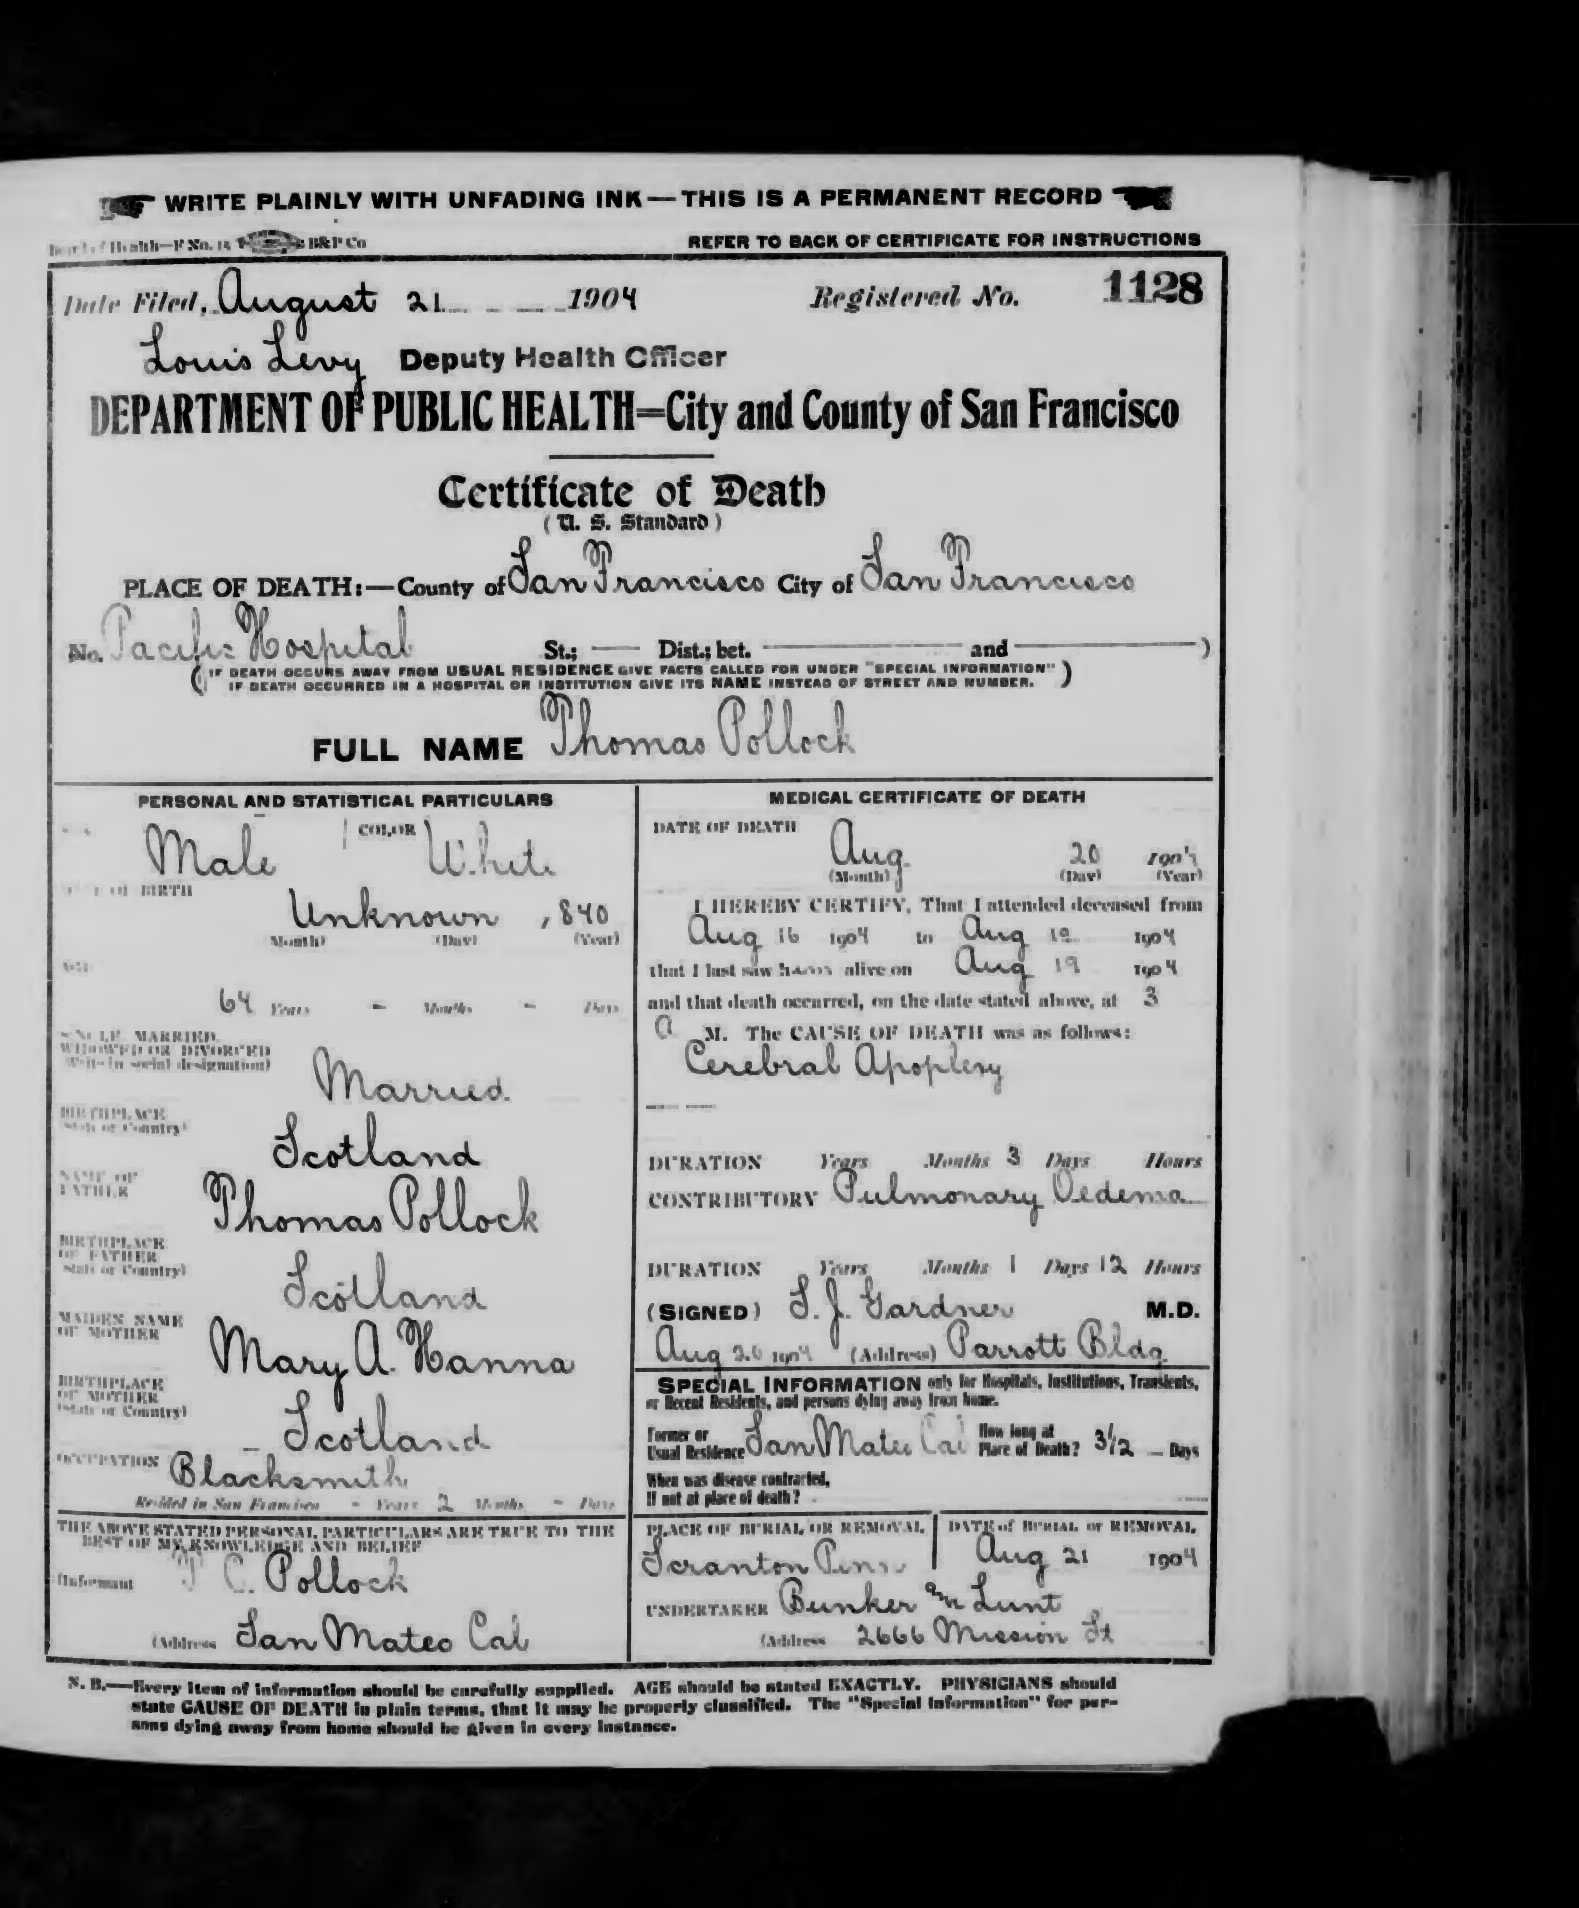 WRITE PLAINLY WITH UNFADING INK — THIS IS A PERMANENT RECORD
Board of Health—F No. 15 B&P Co REFER TO BACK OF CERTIFICATE FOR INSTRUCTIONS
Date Filed, August 21 1904 Registered No. 1128
Louis Levy Deputy Health Officer
DEPARTMENT OF PUBLIC HEALTH=City and County of San Francisco
Certificate of Death
(U. S. Standard)
PLACE OF DEATH:—County of San Francisco City of San Francisco
No. Pacific Hospital St.; — Dist.; bet. — and —)
(IF DEATH OCCURS AWAY FROM USUAL RESIDENCE GIVE FACTS CALLED FOR UNDER "SPECIAL INFORMATION"
IF DEATH OCCURRED IN A HOSPITAL OR INSTITUTION GIVE ITS NAME INSTEAD OF STREET AND NUMBER.)
FULL NAME Thomas Pollock
PERSONAL AND STATISTICAL PARTICULARS
COLOR
Male White
OF BIRTH
Unknown , 840
(Month) (Day) (Year)
64 Years - Months - Days
SINGLE, MARRIED,
WIDOWED OR DIVORCED
(Write in social designation)
Married
BIRTHPLACE
(State or Country)
Scotland
NAME OF
FATHER
Thomas Pollock
BIRTHPLACE
OF FATHER
(State or Country)
Scotland
MAIDEN NAME
OF MOTHER
Mary A. Hanna
BIRTHPLACE
OF MOTHER
(State or Country)
Scotland
OCCUPATION Blacksmith
Resided in San Francisco - Years 2 Months - Days
THE ABOVE STATED PERSONAL PARTICULARS ARE TRUE TO THE
BEST OF MY KNOWLEDGE AND BELIEF
(Informant C. Pollock
(Address San Mateo Cal
MEDICAL CERTIFICATE OF DEATH
DATE OF DEATH
Aug. 20 1904
(Month) (Day) (Year)
I HEREBY CERTIFY, That I attended deceased from
Aug 16 1904 to Aug 19 1904
that I last saw him alive on Aug 19 1904
and that death occurred, on the date stated above, at 3
a M. The CAUSE OF DEATH was as follows:
Cerebral Apoplexy
DURATION Years Months 3 Days Hours
CONTRIBUTORY Pulmonary Oedema
DURATION Years Months 1 Days 12 Hours
(SIGNED) S. J. Gardner M.D.
Aug 20 1904 (Address) Parrott Bldg.
SPECIAL INFORMATION only for Hospitals, Institutions, Transients,
or Recent Residents, and persons dying away from home.
Former or
Usual Residence San Mateo Cal
How long at
Place of Death? 3 1/2 — Days
When was disease contracted,
If not at place of death?
PLACE OF BURIAL OR REMOVAL
Scranton Penn
DATE of BURIAL or REMOVAL
Aug 21 1904
UNDERTAKER Bunker and Lunt
(Address 2666 Mission St
N. B.—Every item of information should be carefully supplied. AGE should be stated EXACTLY. PHYSICIANS should
state CAUSE OF DEATH in plain terms, that it may be properly classified. The "Special Information" for per-
sons dying away from home should be given in every instance.